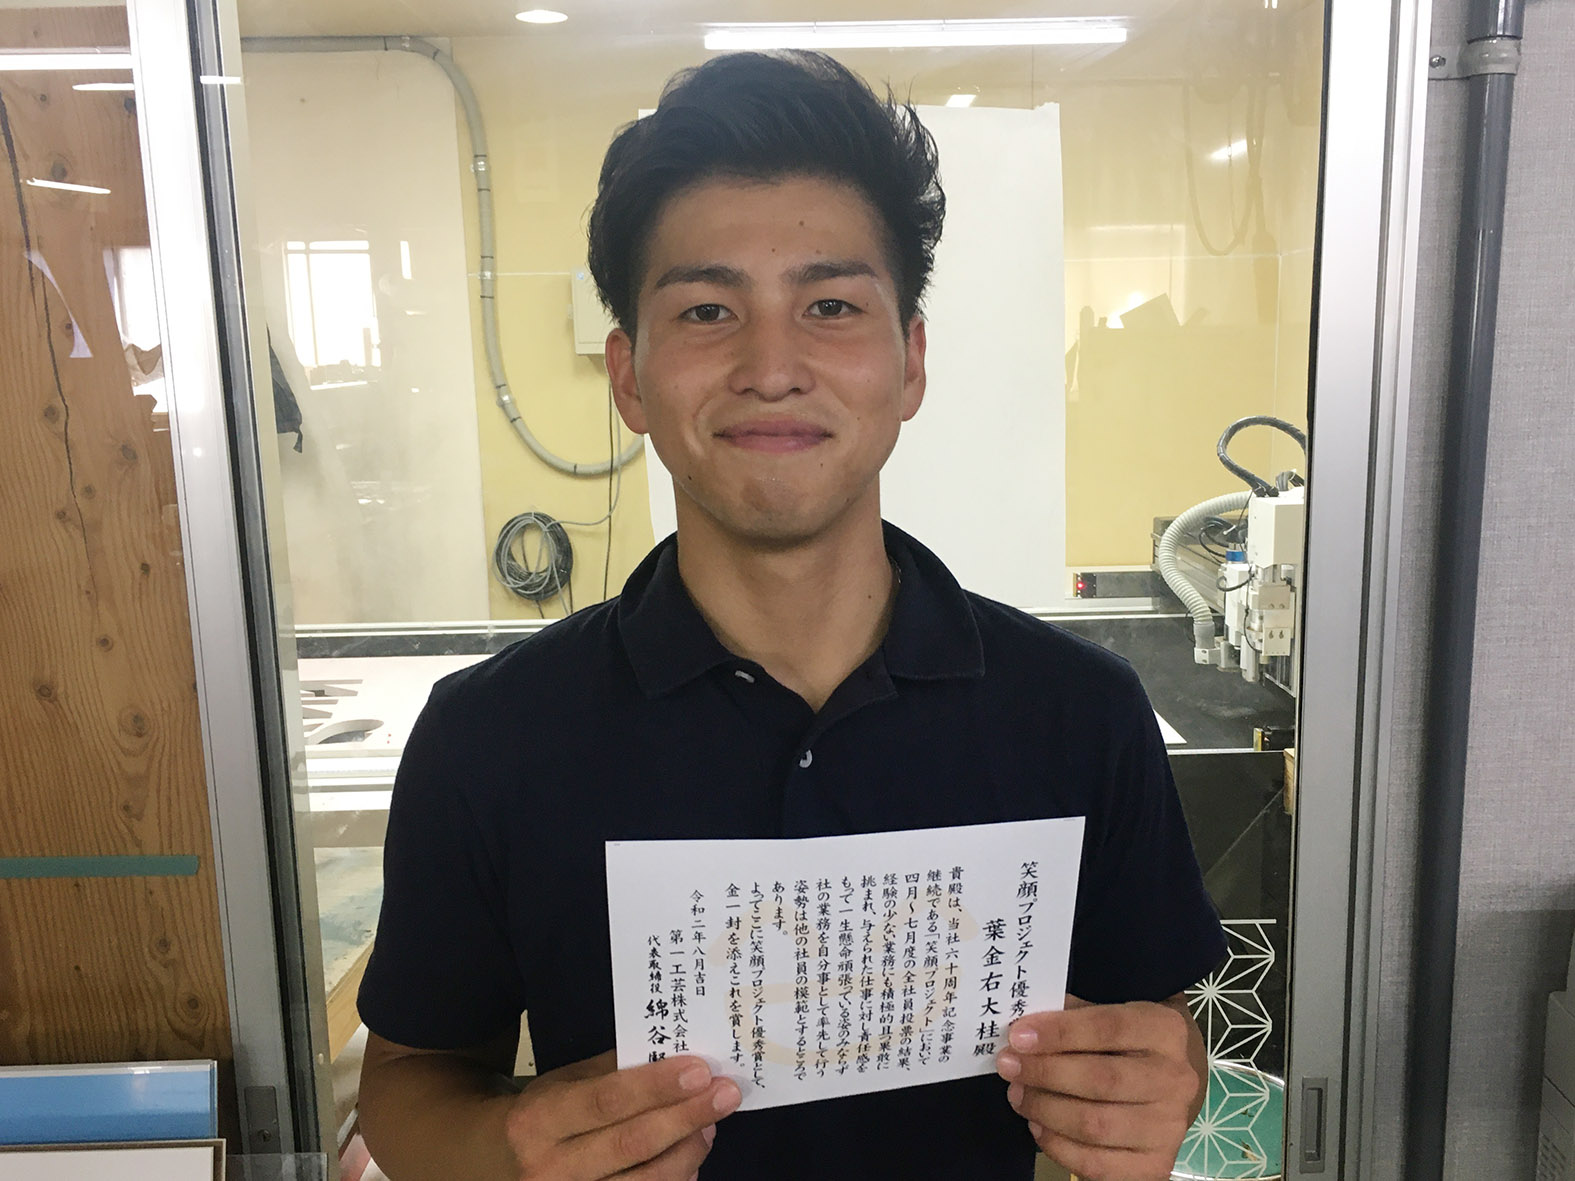 笑顔プロジェクト優秀
葉金右大桂殿
貴殿は、当社六十周年記念事業の
継続である「笑顔プロジェクト」において、
四月〜七月度の全社員投票の結果、
経験の少ない業務にも積極的且つ果敢に
挑まれ、与えられた仕事に対し責任感を
もって一生懸命頑張っている姿のみならず
社の業務を自分事として率先して行う
姿勢は他の社員の模範とするところで
あります。
よってここに笑顔プロジェクト優秀賞として、
金一封を添えこれを賞します。
令和二年八月吉日
第一工芸株式会社
代表取締役 綿谷